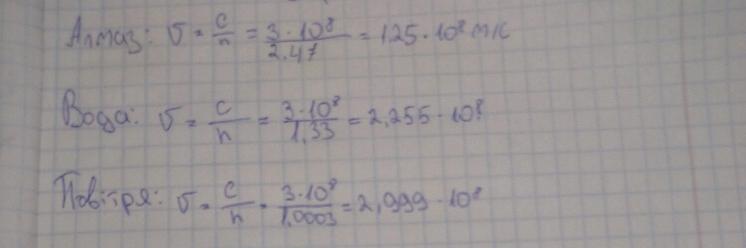 Алмаз: v = c/n = 3·10⁸/2.47 = 125·10⁸ м/с
Вода: v = c/n = 3·10⁸/1,33 = 2,255·10⁸
Повітря: v = c/n = 3·10⁸/1,0003 = 2,999·10⁸